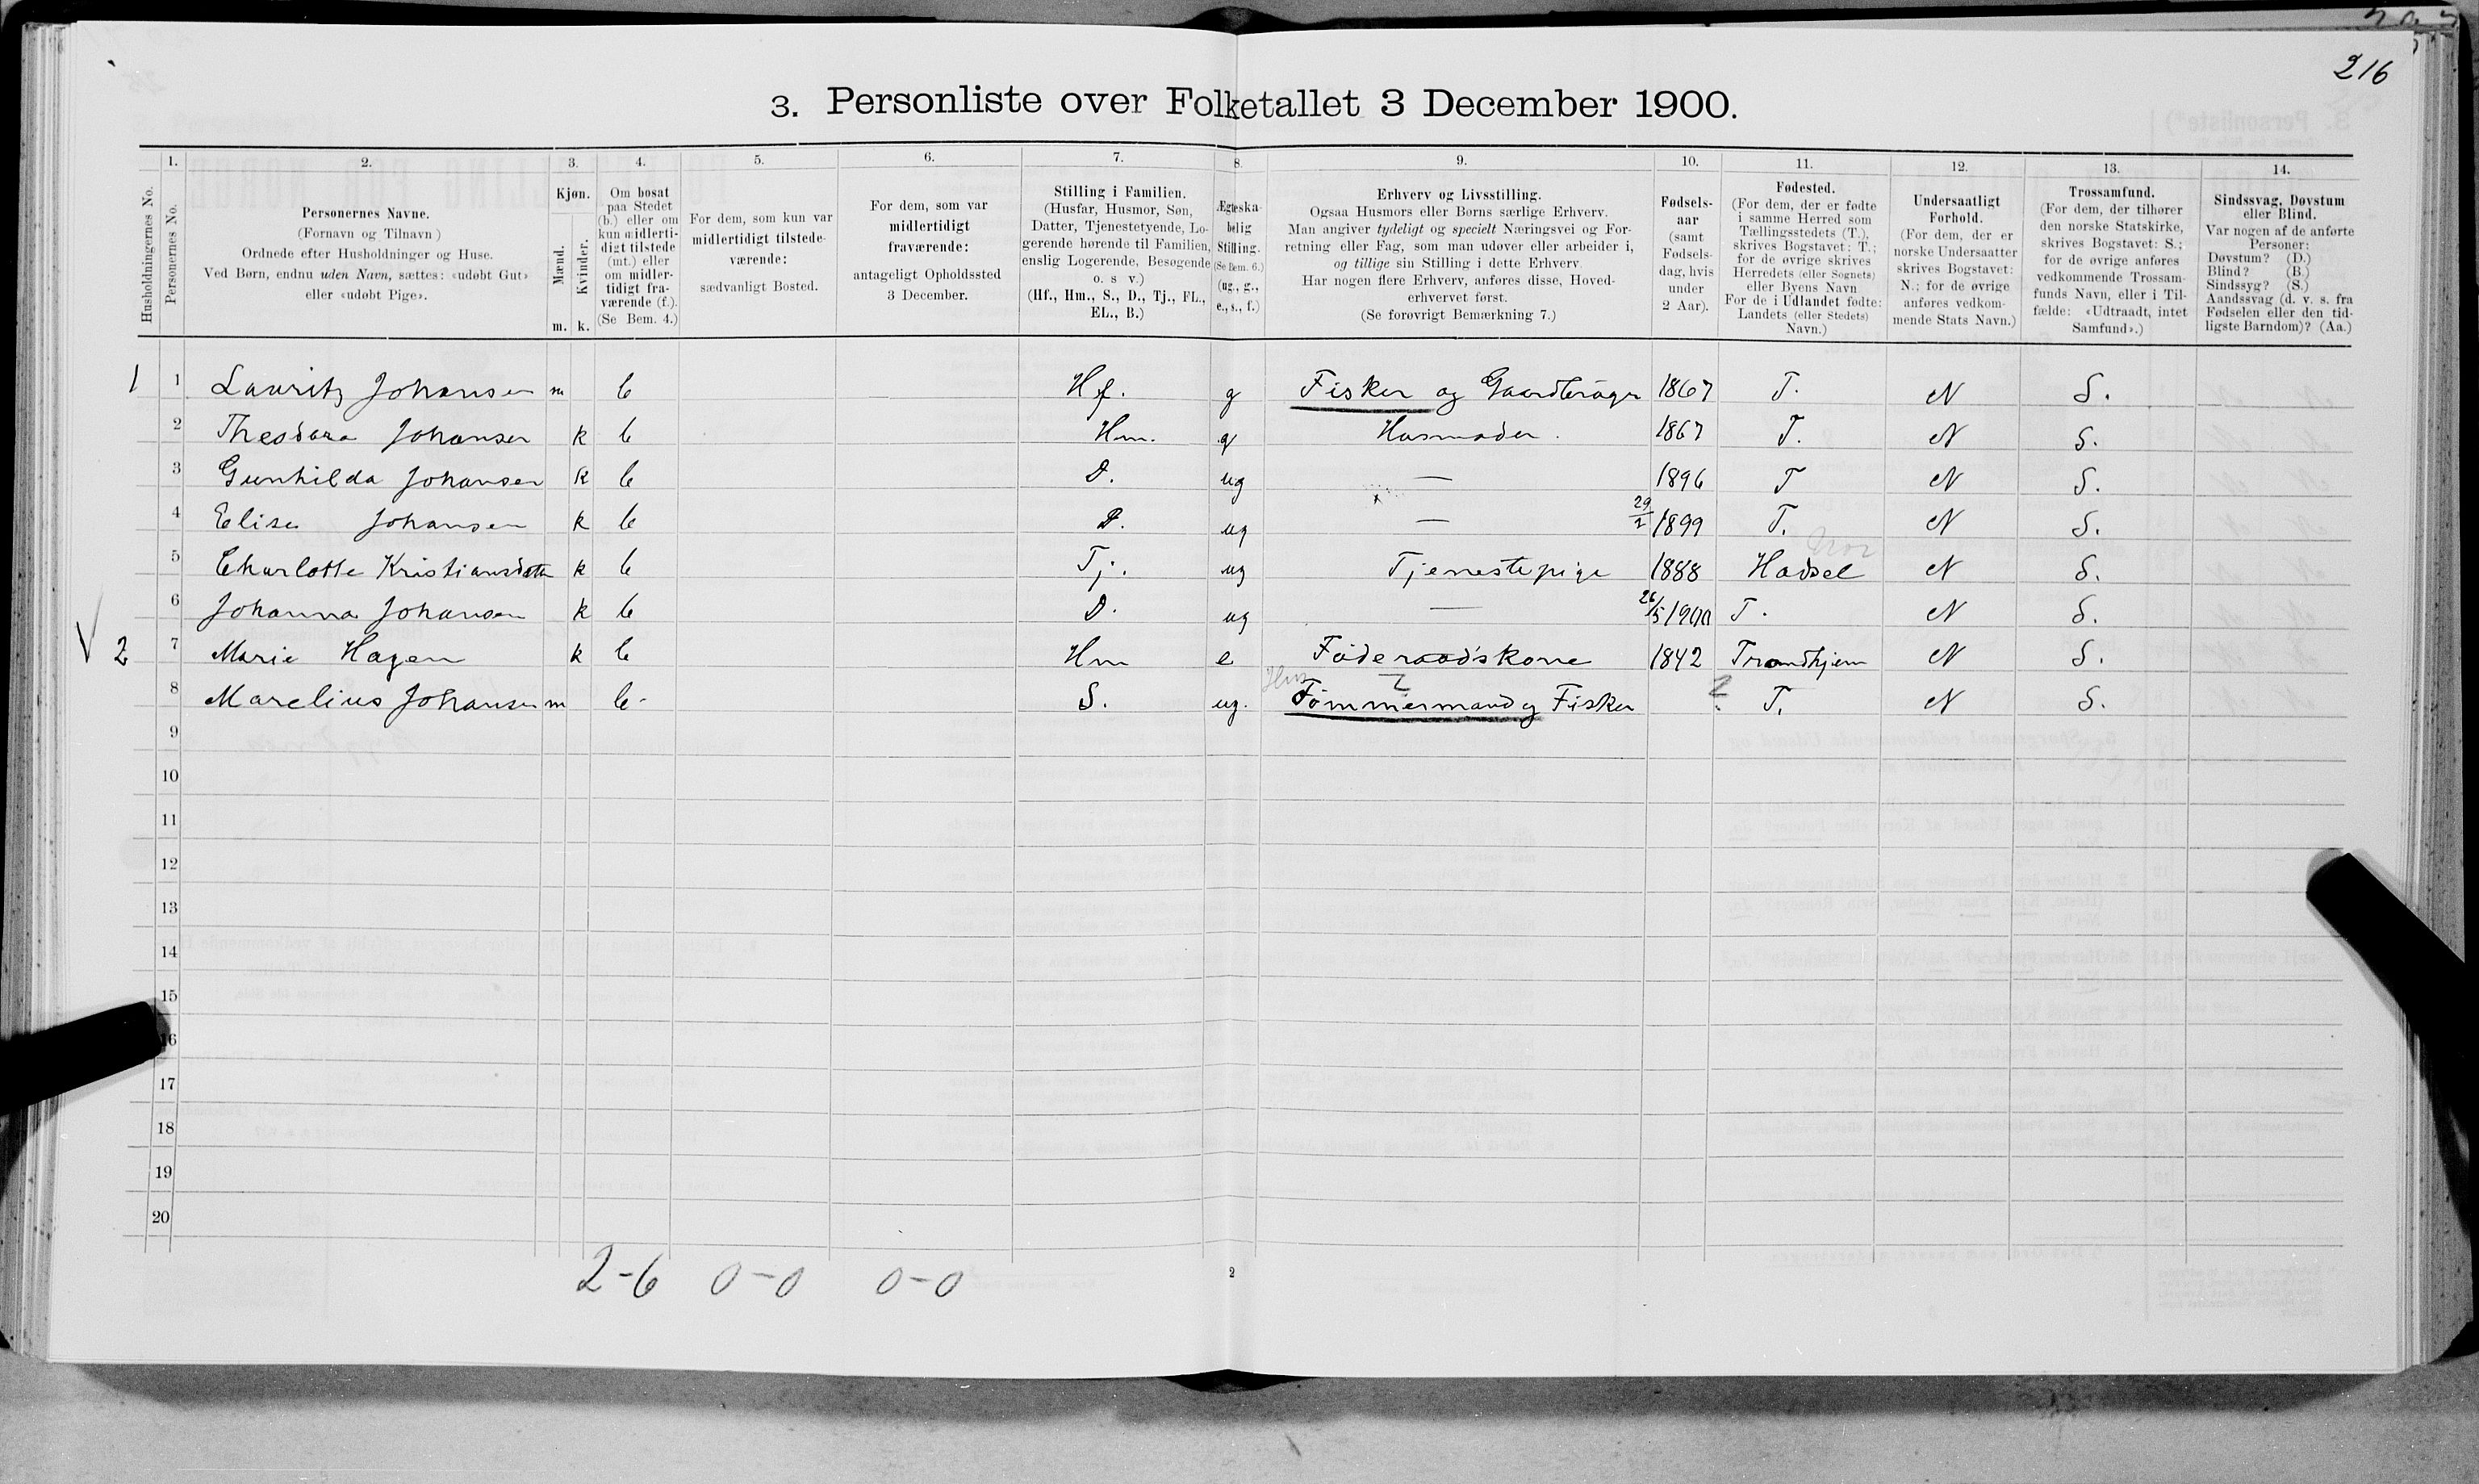 216
3. Personliste over Folketallet 3 December 1900.
1. 2. 3. 4. 5. 6. 7. 8. 9. 10. 11. 12. 13. 14.
Husholdningernes No.
Personernes No.
Personernes Navne.
(Fornavn og Tilnavn)
Ordnede efter Husholdninger og Huse.
Ved Børn, endnu uden Navn, sættes: «udøbt Gut»
eller «udøbt Pige».
Kjøn.
Mænd.
Kvinder.
m. k.
Om bosat
paa Stedet
(b.) eller om
kun midlerti-
digt tilstede
(mt.) eller
om midler-
tidigt fra-
værende (f.).
(Se Bem. 4.)
For dem, som kun var
midlertidigt tilstede-
værende:
sædvanligt Bosted.
For dem, som var
midlertidigt
fraværende:
antageligt Opholdssted
3 December.
Stilling i Familien.
(Husfar, Husmor, Søn,
Datter, Tjenestetyende, Lo-
gerende hørende til Familien,
enslig Logerende, Besøgende
o. s v.)
(Hf., Hm., S., D., Tj., FL.,
EL., B.)
Ægteska-
belig
Stilling.
(Se Bem. 6.)
(ug., g.,
e., s., f.)
Erhverv og Livsstilling.
Ogsaa Husmors eller Børns særlige Erhverv.
Man angiver tydeligt og specielt Næringsvei og For-
retning eller Fag, som man udøver eller arbeider i,
og tillige sin Stilling i dette Erhverv
Har nogen flere Erhverv, anføres disse, Hoved-
erhvervet først.
(Se forøvrigt Bemærkning 7.)
Fødsels-
aar
(samt
Fødsels-
dag, hvis
under
2 Aar).
Fødested.
(For dem, der er fødte
i samme Herred som
Tællingsstedets (T.),
skrives Bogstavet: T.;
for de øvrige skrives
Herredets (eller Sognets)
eller Byens Navn
For de i Udlandet fødte:
Landets (eller Stedets)
Navn.)
Undersaatligt
Forhold.
(For dem, der er
norske Undersaatter
skrives Bogstavet:
N.; for de øvrige
anføres vedkom-
mende Stats Navn.)
Trossamfund.
(For dem, der tilhører
den norske Statskirke,
skrives Bogstavet: S.;
for de øvrige anføres
vedkommende Trossam-
funds Navn, eller i Til-
fælde: «Udtraadt, intet
Samfund».)
Sindssvag, Døvstum
eller Blind.
Var nogen af de anførte
Personer:
Døvstum? (D.)
Blind? (B.)
Sindssyg? (S.)
Aandssvag (d. v. s. fra
Fødselen eller den tid-
ligste Barndom)? (Aa.)
1 1 Lauritz Johansen m b Hf. g Fisker og Gaardbruger 1867 T. N S.
2 Theodora Johansen k b Hm. g Husmoder. 1867 T. N S.
3 Gunhilda Johansen k b D. ug — 1896 T N S.
4 Elise Johansen k b D. ug — 29/1 1899 T. N S.
5 Charlotte Kristiansdatter k b Tj. ug Tjenestepige 1888 Hadsel N S.
6 Johanna Johansen k b D. ug — 26/5 1900 T. N S.
V 2 7 Marie Hagen k b Hm e Föderaadskone 1842 Trondhjem N S.
8 Marelius Johansen m b- S. ug. Hus Tömmermand og Fisker ? T. N S.
9
10
11
12
13
14
15
16
17
18
19
20
2-6 0-0 0-0
2